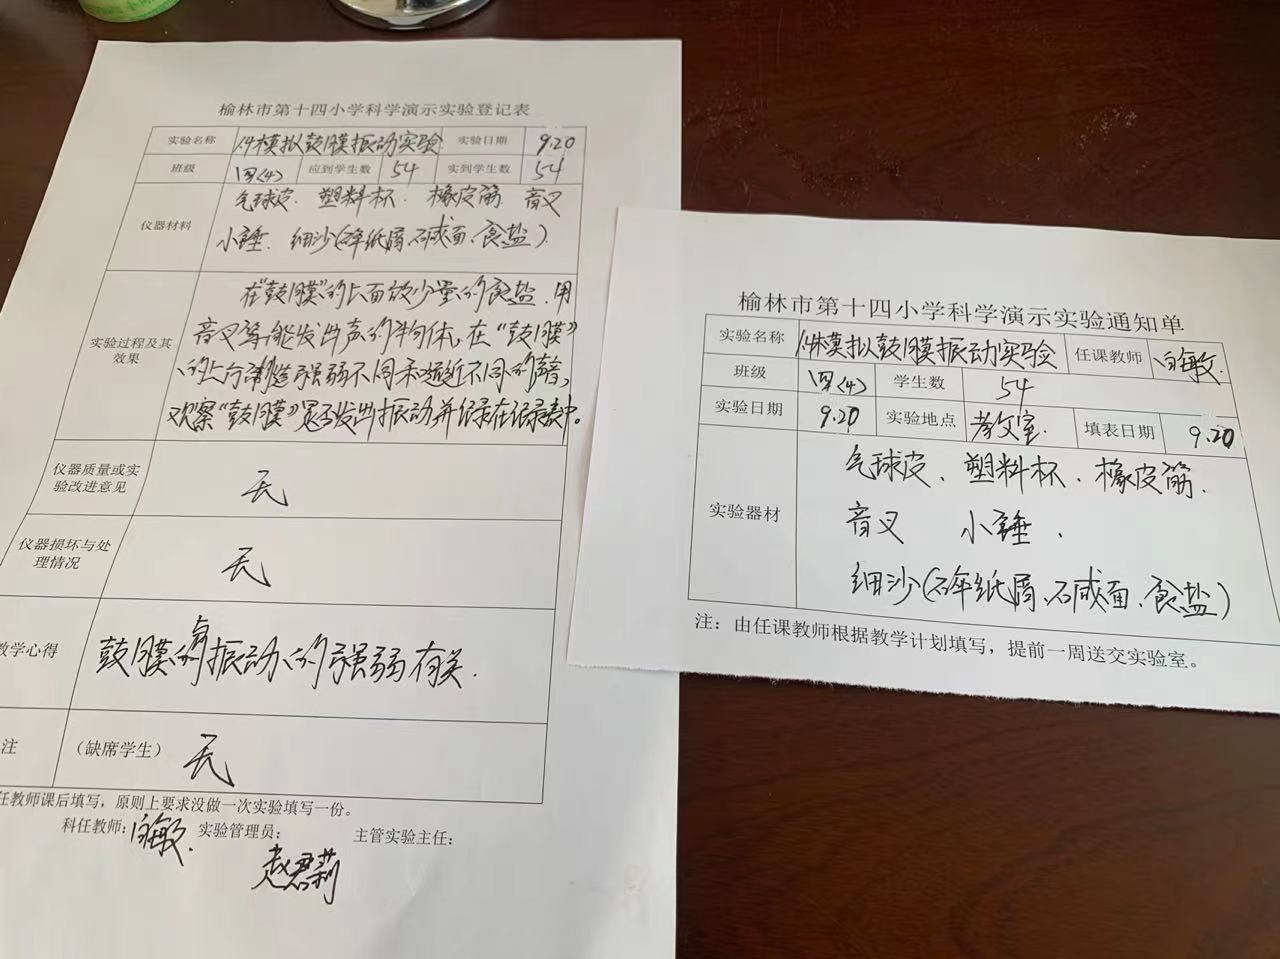 榆林市第十四小学科学演示实验登记表
实验名称 1.4模拟鼓膜振动实验 实验日期 9.20
班级 四(4) 应到学生数 54 实到学生数 54
仪器材料
气球皮、塑料杯、橡皮筋、音叉
小锤、细沙(碎纸屑、碱面、食盐)
实验过程及其
效果
在“鼓膜”的上面放少量的食盐,用
音叉等能发出声的物体,在“鼓膜”
的上方制造强弱不同和远近不同的声音,
观察“鼓膜”是否发出振动并纪录在纪录表中。
仪器质量或实
验改进意见
无
仪器损坏与处
理情况
无
教学心得
鼓膜的与振动的强弱有关.
注
(缺席学生) 无
任教师课后填写,原则上要求没做一次实验填写一份。
科任教师: 白敏 实验管理员: 主管实验主任:
赵君莉
榆林市第十四小学科学演示实验通知单
实验名称 1.4模拟鼓膜振动实验 任课教师 白敏
班级 四(4) 学生数 54
实验日期 9.20 实验地点 教室 填表日期 9.20
实验器材
气球皮、塑料杯、橡皮筋、
音叉 小锤、
细沙(碎纸屑、碱面、食盐)
注:由任课教师根据教学计划填写,提前一周送交实验室。